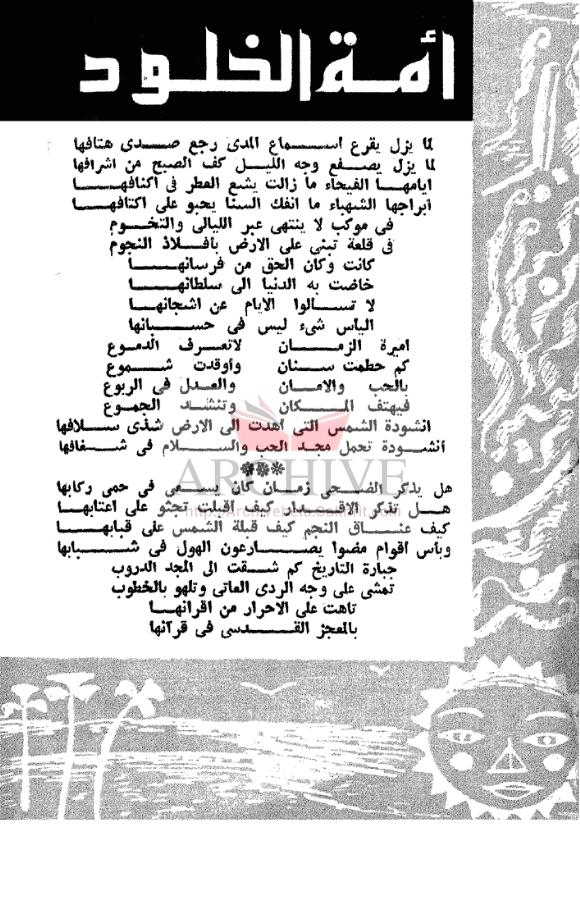 أمة الخلود
لما يزل يقرع اسماع المدى رجع صدى هتافها
لما يزل يصفع وجه الليل كف الصبح من اشرافها
ايامها الفيحاء ما زالت يشع العطر فى اكنافها
ابراجها الشهباء ما انفك السنا يحبو على اكتافها
فى موكب لا ينتهى عبر الليالى والتخوم
فى قلعة تبنى على الارض بافلاذ النجوم
كانت وكان الحق من فرسانها
خاضت به الدنيا الى سلطانها
لا تسألوا الايام عن اشجانها
الياس شىء ليس فى حسبانها
اميرة الزمان لاتعرف الدموع
كم حطمت سنان وأوقدت شموع
بالحب والامان والعدل فى الربوع
فيهتف المكان وتنشد الجموع
انشودة الشمس التى اهدت الى الارض شذى سلافها
أنشودة تحمل مجد الحب والسلام فى شغافها
***
ARCHIVE
هل يذكر الضحى زمان كان يسعى فى حمى ركابها
هل تذكر الاقدار كيف اقبلت تجثو على اعتابها
كيف عناق النجم كيف قبلة الشمس على قبابها
وبأس أقوام مضوا يصارعون الهول فى شبابها
جبارة التاريخ كم شقت الى المجد الدروب
تمشى على وجه الردى العاتى وتلهو بالخطوب
تاهت على الاحرار من اقرانها
بالمعجز القدسى فى قرآنها